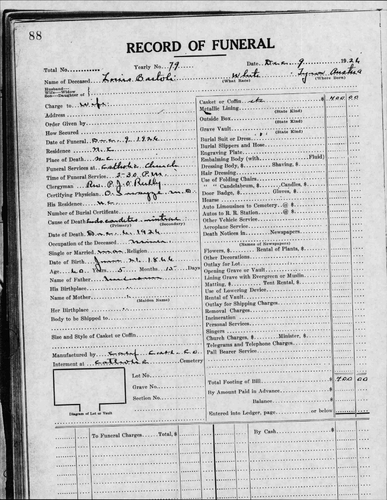 88
RECORD OF FUNERAL
Total No. Yearly No. 79 Date Dec. 9 1926
Name of Deceased Louis Bartoli White
(What Race) (Where Born)
Husband
Wife Widow
Son Daughter of
Charge to Wife
Address
Order Given by
How Secured
Date of Funeral Dec. 9 1926
Residence
Place of Death
Funeral Services at Catholic Church
Time of Funeral Service 2-30 P.M.
Clergyman Rev. P. J. O'Reilly
Certifying Physician
His Residence
Number of Burial Certificate
Cause of Death
Date of Death Dec. 1926
Occupation of the Deceased Miner
Single or Married Religion
Date of Birth June 21 1866
Age 60 Years 5 Months Days
Name of Father
His Birthplace
Name of Mother
(Maiden Name)
Her Birthplace
Body to be Shipped to
Size and Style of Casket or Coffin
Manufactured by
Interment at Catholic Cemetery
Lot No.
Grave No.
Section No.
Diagram of Lot or Vault
Casket or Coffin etc $ 700 00
Metallic Lining
(State Kind)
Outside Box
(State Kind)
Grave Vault
(State Kind)
Burial Suit or Dress
Burial Slippers and Hose
Engraving Plate
Embalming Body (with Fluid)
Dressing Body, $ Shaving, $
Hair Dressing
Use of Folding Chairs
" " Candelabrum, $ Candles, $
Door Badge, $ Gloves, $
Hearse
Auto Limousines to Cemetery @ $
Autos to R. R. Station @ $
Other Vehicle Service
Aeroplane Service
Death Notices in Newspapers
(Names of Newspapers)
Flowers, $ Rental of Plants, $
Other Decorations
Outlay for Lot
Opening Grave or Vault
Lining Grave with Evergreen or Muslin
Matting, $ Tent Rental, $
Use of Lowering Device
Rental of Vault
Outlay for Shipping Charges
Removal Charges
Incineration
Personal Services
Singers
Church Charges, $ Minister, $
Telegrams and Telephone Charges
Pall Bearer Service
Total Footing of Bill $ 700 00
By Amount Paid in Advance
Balance
Entered into Ledger, page or below
To Funeral Charges Total, $ By Cash $